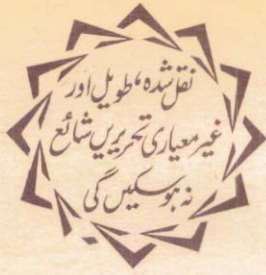 نقل شدہ، طویل اور
غیر معیاری تحریریں شائع
نہ ہو سکیں گی